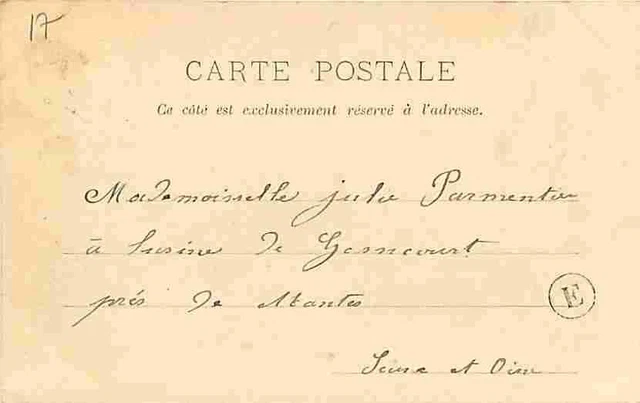 17
CARTE POSTALE
Ce côté est exclusivement réservé à l'adresse.
Mademoiselle julie Parmentier
à lusine de Gomcourt
prés de Mantes
E
Seine et Oise